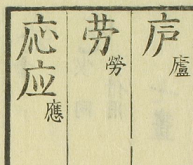 庐廬
劳勞
応应應